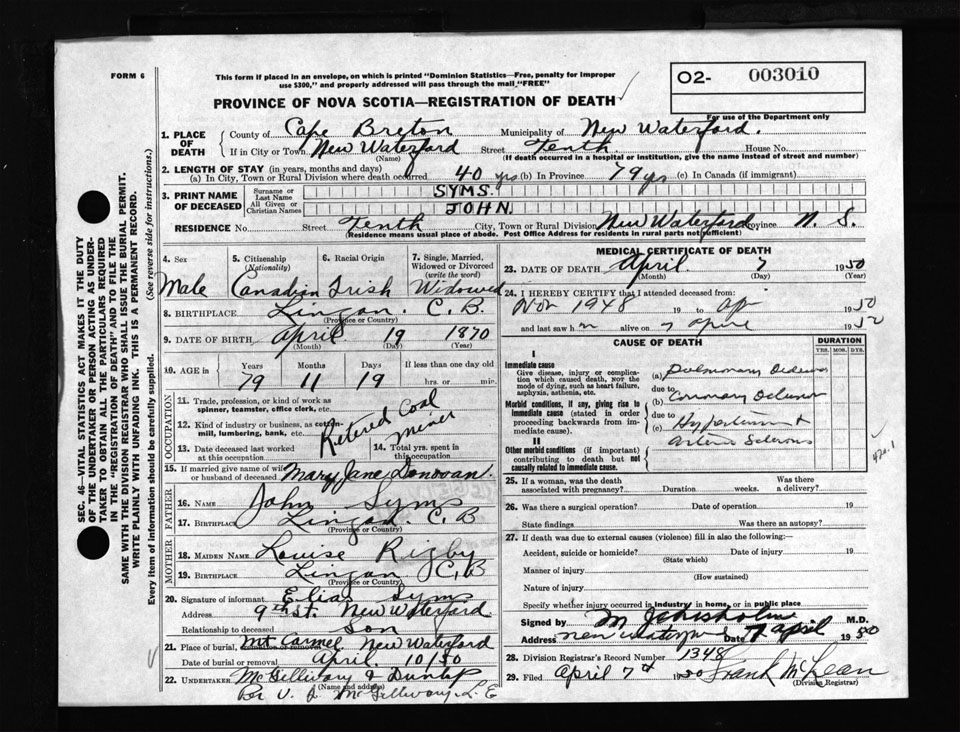 FORM 6
This form if placed in an envelope, on which is printed "Dominion Statistics—Free, penalty for improper
use $300," and properly addressed will pass through the mail "FREE"
O2- 003010
For use of the Department only
PROVINCE OF NOVA SCOTIA—REGISTRATION OF DEATH
1. PLACE OF DEATH
County of Cape Breton Municipality of New Waterford.
If in City or Town New Waterford Street Tenth House No.
(Name) (If death occurred in a hospital or institution, give the name instead of street and number)
2. LENGTH OF STAY (in years, months and days)
(a) In City, Town or Rural Division where death occurred 40 yrs (b) In Province 79 yrs (c) In Canada (if immigrant)
3. PRINT NAME OF DECEASED
Surname or Last Name SYMS.
All Given or Christian Names JOHN.
RESIDENCE No. Street Tenth City, Town or Rural Division New Waterford Province N. S.
(Residence means usual place of abode. Post Office Address for residents in rural parts not sufficient)
4. Sex 5. Citizenship (Nationality) 6. Racial Origin 7. Single, Married, Widowed or Divorced (write the word)
Male Canadian Irish Widowed
8. BIRTHPLACE Lingan C. B.
(Province or Country)
9. DATE OF BIRTH April 19 1870
(Month) (Day) (Year)
10. AGE in Years Months Days If less than one day old
79 11 19 hrs. or min.
OCCUPATION
11. Trade, profession, or kind of work as
spinner, teamster, office clerk, etc.
12. Kind of industry or business, as cotton-
mill, lumbering, bank, etc.
Retired Coal Miner
13. Date deceased last worked
at this occupation
14. Total yrs. spent in
this occupation
15. If married give name of wife
or husband of deceased Mary Jane Donovan.
FATHER
16. NAME John Syms
17. BIRTHPLACE Lingan C. B
(Province or Country)
MOTHER
18. MAIDEN NAME Louise Rigby
19. BIRTHPLACE Lingan C. B
(Province or Country)
20. Signature of informant Elias Syms
Address 9th st. New Waterford.
Relationship to deceased Son
21. Place of burial, cremation or removal Mt Carmel New Waterford
Date of burial or removal April 10/50
22. UNDERTAKER McGillivary & Dunlap
(Name and address)
McGillivary L. E
MEDICAL CERTIFICATE OF DEATH
23. DATE OF DEATH April 7 1950
(Month) (Day)
24. I HEREBY CERTIFY that I attended deceased from:
Nov 1948 19 to Apr 1950
and last saw him alive on 7 April 1950
CAUSE OF DEATH DURATION
YRS. MOS. DYS.
I
Immediate cause
Give disease, injury or complica-
tion which caused death, NOT the
mode of dying, such as heart failure,
asphyxia, asthenia, etc.
(a) Pulmonary Oedema
due to
Morbid conditions, if any, giving rise to
immediate cause (stated in order
proceeding backwards from im-
mediate cause).
(b) Coronary
due to
(c)
II
Other morbid conditions (if important)
contributing to death but not
causally related to immediate cause.
25. If a woman, was the death
associated with pregnancy? Duration weeks. Was there
a delivery?
26. Was there a surgical operation? Date of operation 19
State findings Was there an autopsy?
27. If death was due to external causes (violence) fill in also the following:
Accident, suicide or homicide? Date of injury 19
(State which)
Manner of injury
(How sustained)
Nature of injury
Specify whether injury occurred in industry, in home, or in public place
Signed by M J Chisholm M.D.
Address New Waterford Date 7 April 1950
28. Division Registrar's Record Number 1348
29. Filed April 7th 1950 Frank McLean
(Division Registrar)
SEC. 46—VITAL STATISTICS ACT MAKES IT THE DUTY
OF THE UNDERTAKER OR PERSON ACTING AS UNDER-
TAKER TO OBTAIN ALL THE PARTICULARS REQUIRED
IN THE "REGISTRATION OF DEATH" AND TO FILE THE
SAME WITH THE DIVISION REGISTRAR WHO SHALL ISSUE THE BURIAL PERMIT.
WRITE PLAINLY WITH UNFADING INK. THIS IS A PERMANENT RECORD.
Every item of information should be carefully supplied. (See reverse side for instructions.)